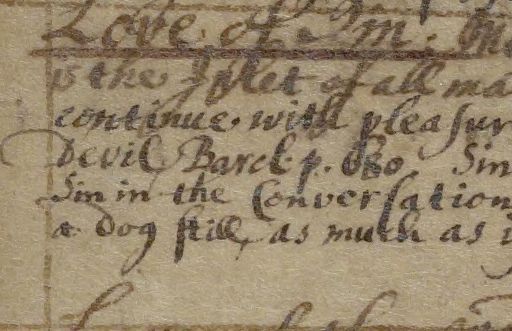 Love. of Sin.
is the Inlet of all
continue with pleasur
Devil Barcl. p. 680 Sin
Sin in the Conversation
a dog still, as much as